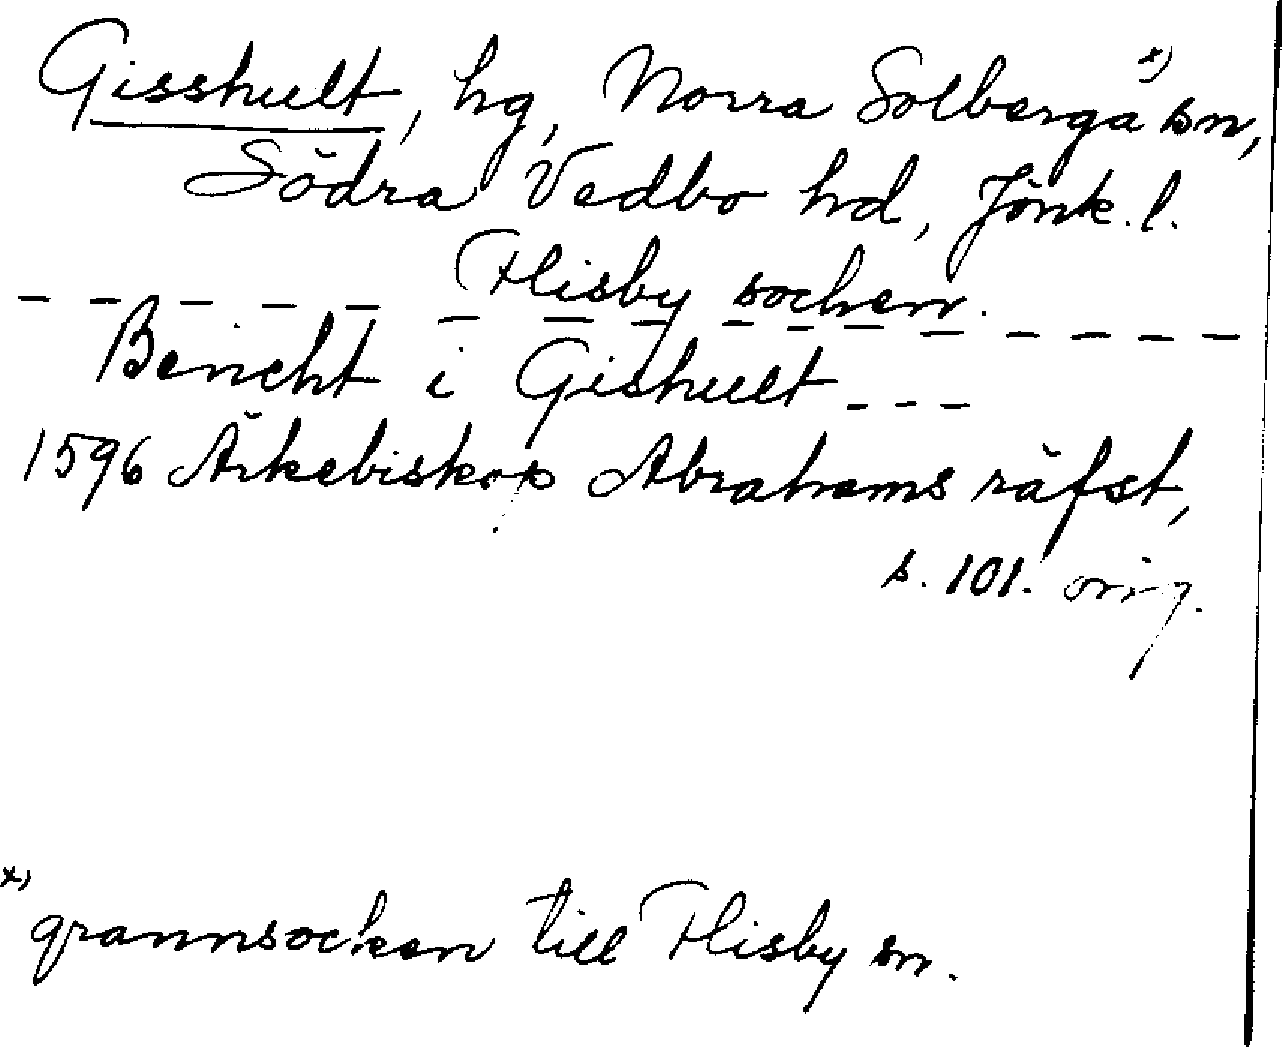 Gisshult, hg, Norra Solberga x) sn,
Södra Vedbo hd, Jönk. l.
Flisby socken.
Bencht i Gishult - - -
1596 Ärkebiskop Abrahams räfst,
s. 101. orig.
x) grannsocken till Flisby sn.